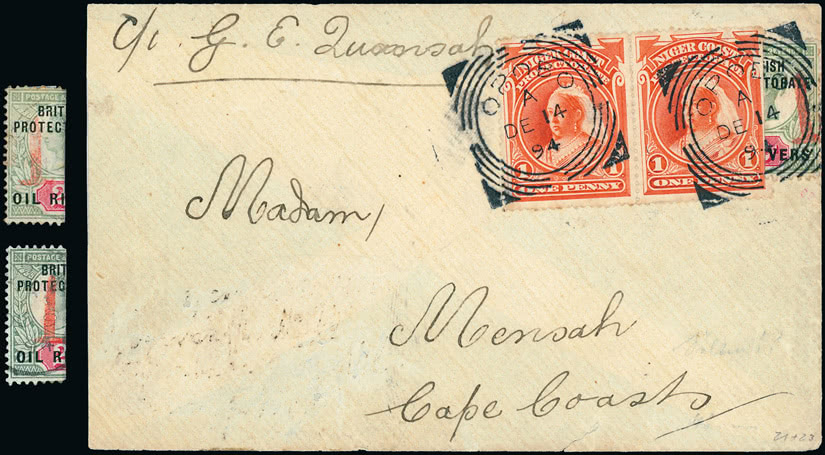 c/o G. E. Quansah
NIGER COAST
PROTECTORATE
1 1
ONE PENNY
NIGER COAST
1 1
ONE PENNY
OPOBO
A
DE 14
94
OPOBO
A
DE 14
94
ISH
TORATE
VERS
POSTAGE &
BRIT
PROTECT
OIL RI
POSTAGE &
BRIT
PROTEC
OIL R
Madam,
Mensah
Cape Coast
21+23